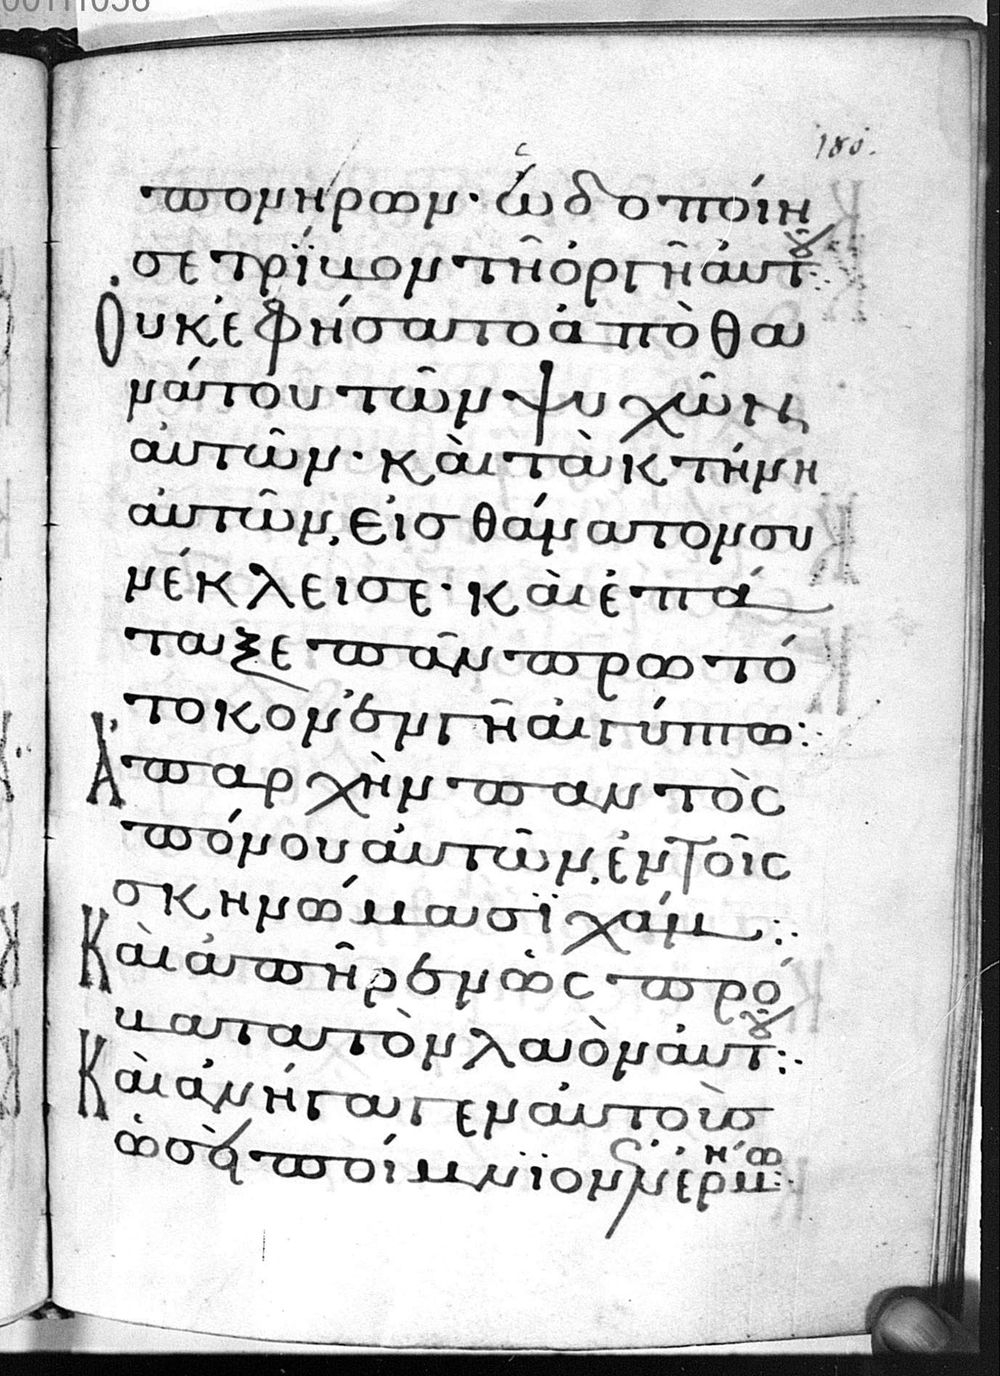 00111056
180.
πονηρων· ὡδοποίη
σε τρίβον τῇ ὀργῇ ἀυτοῦ:
Ουκ ἐφήσατο ἀπὸ θα
νάτου τῶν ψυχῶν
ἀυτῶν· κὰι τὰ κτήνη
ἀυτῶν, εἰσ θάνατον συ
νέκλεισε· κὰι ἐπά
ταξε πᾶν πρωτό
τοκον ἐν γῇ ἀιγύπτω:
Ἀπαρχὴν παντὸς
πόνου ἀυτῶν, ἐν τοῖς
σκηνώμασϊ χάμ:
Κὰι ἀπῆρεν ὡς πρό
βατα τὸν λαὸν ἀυτοῦ:
Κὰι ἀνήγαγεν ἀυτοὺσ
ὡσεὶ ποίμνϊον ἐν ἐρήμω: